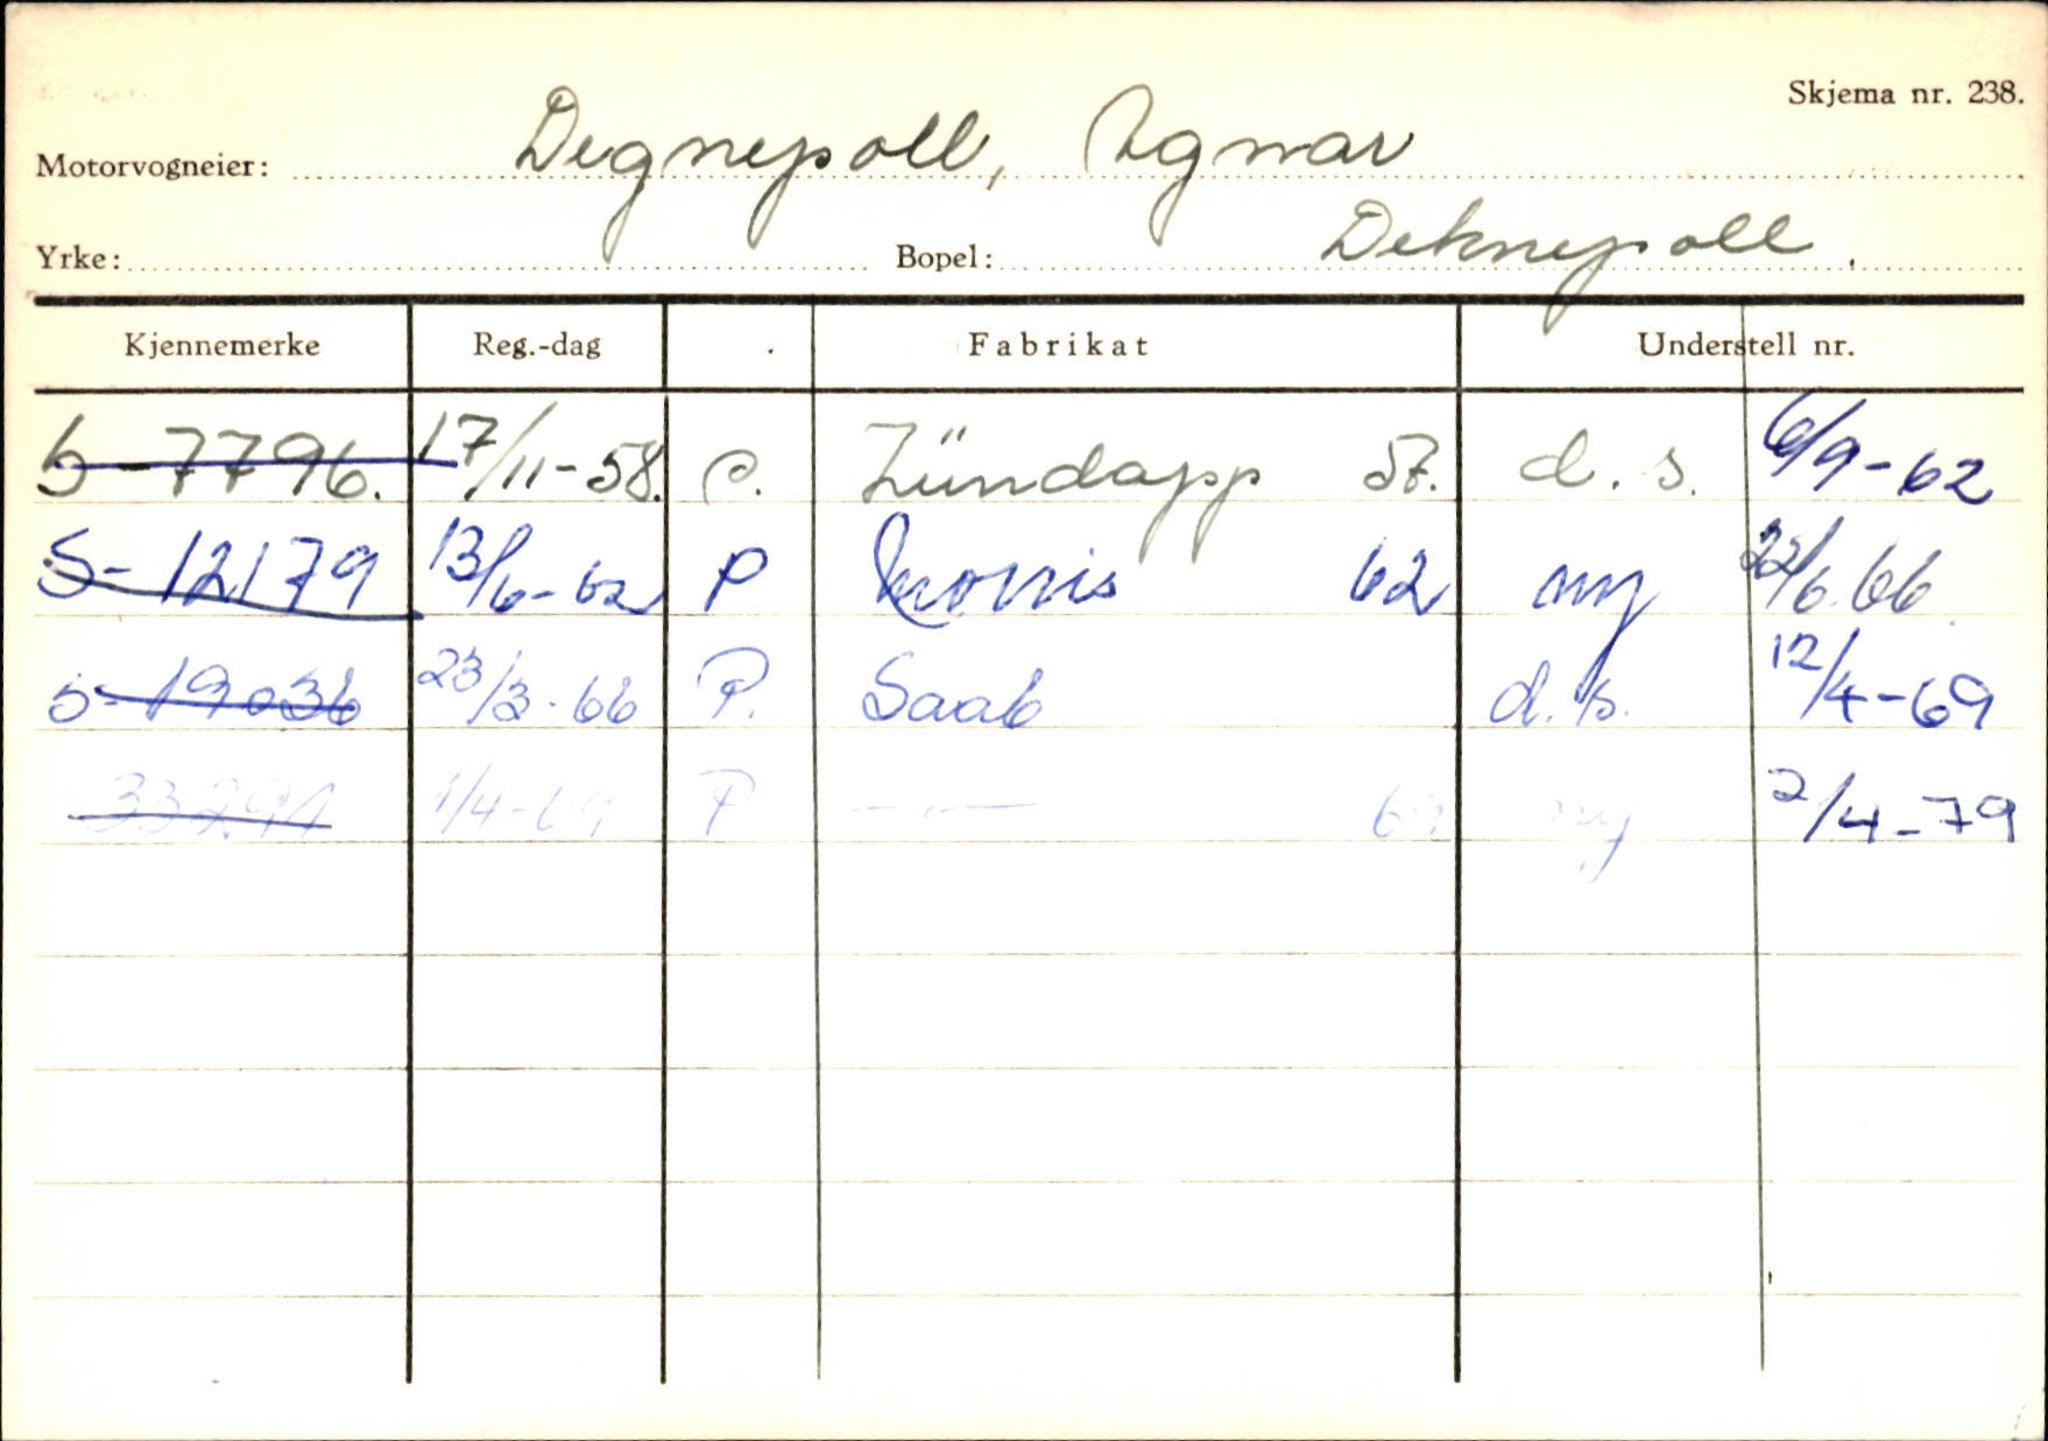 Skjema nr. 238.
Motorvogneier: Degnepoll, Agnar
Yrke: Bopel: Deknepoll.
Kjennemerke Reg.-dag Fabrikat Understell nr.
S-7796. 17/11-58. P. Zündapp 57. d.s. 6/9-62
S-12179 13/6-62 P Morris 62 ny 22/6 66
S-19036 23/3-66 P. Saab d.s. 12/4-69
1/4-69 P —„— 69 ny 2/4-79